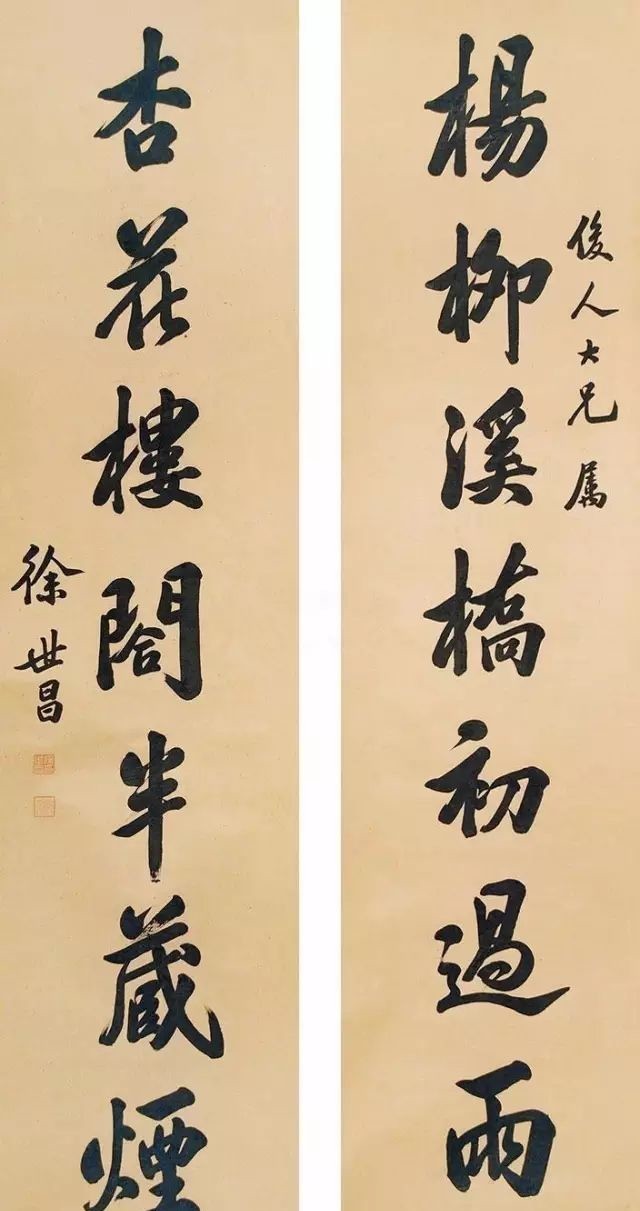 楊柳溪橋初過雨
俊人大兄屬
杏花樓閣半藏煙
徐世昌